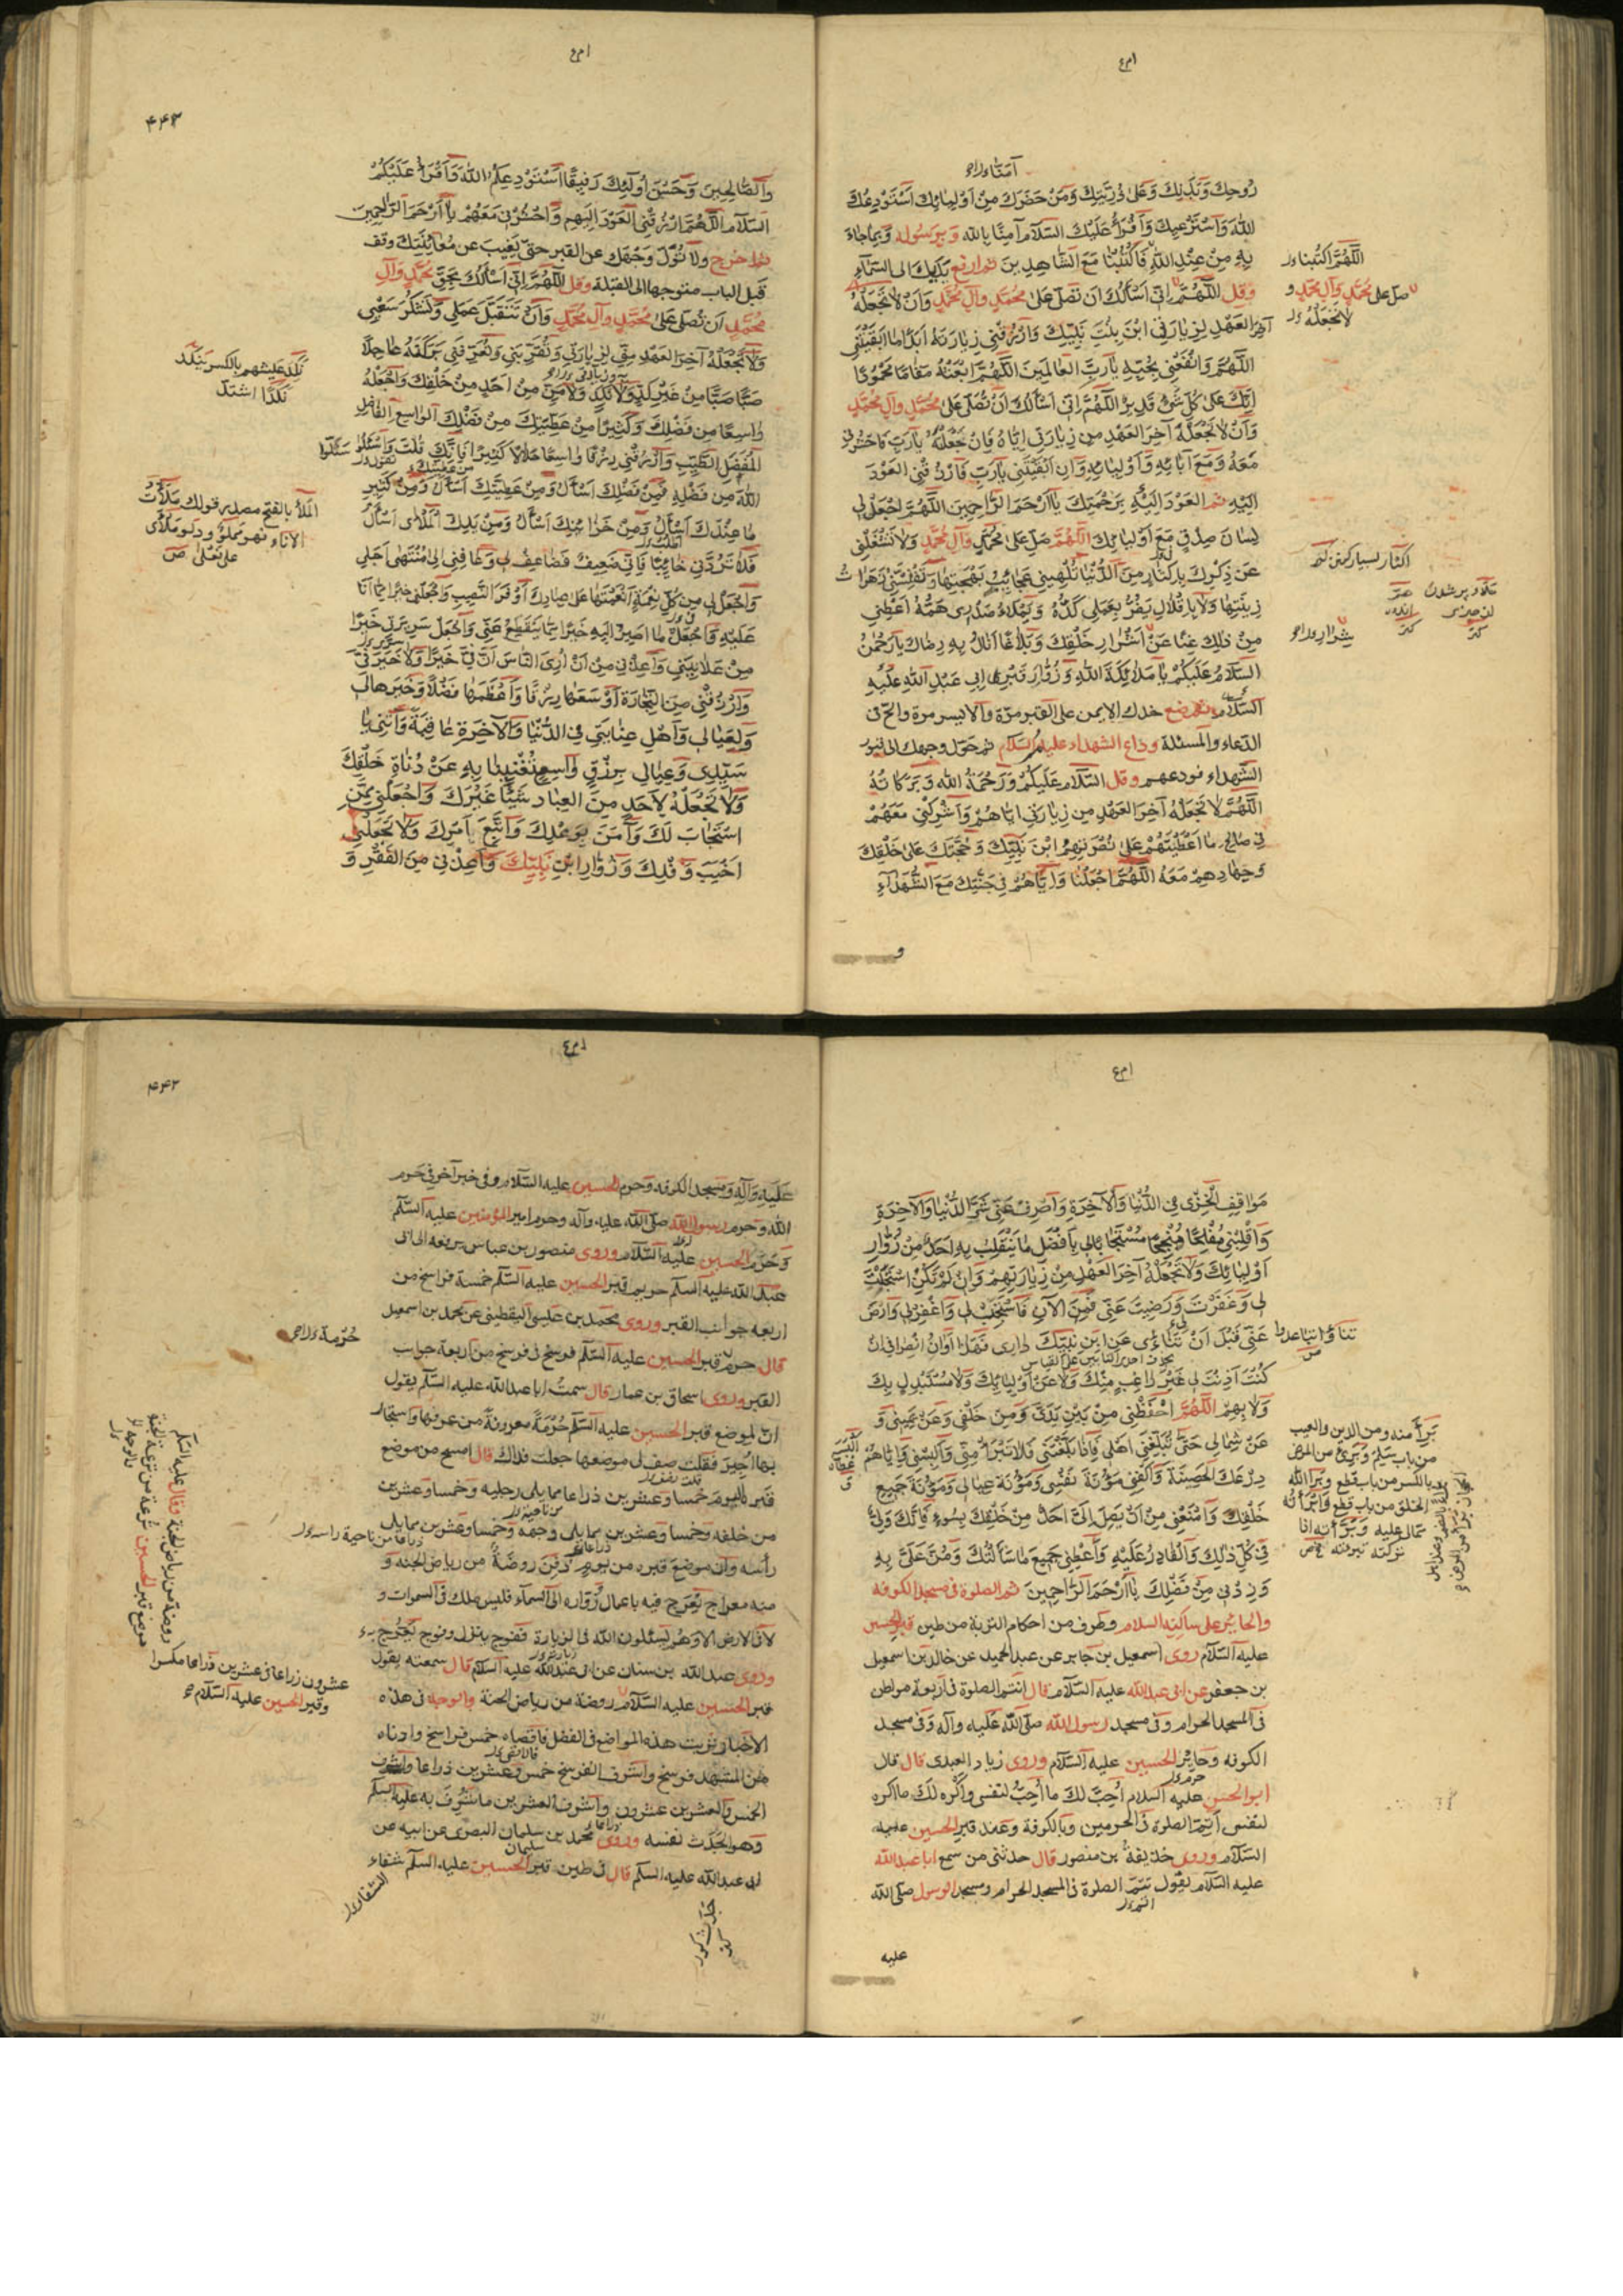 امع
آمناء دراه
رُوحِكَ وَبَدَنِكَ وَعَلىٰ ذُرِّيَّتِكَ وَمَنْ حَضَرَكَ مِنْ اَوْلِيائِكَ اَسْتَوْدِعُكَ
اللهَ وَاَسْتَرْعيكَ وَاَقْرَأُ عَلَيْكَ السَّلامَ آمَنّا بِاللهِ وَبِرَسُولِهِ وَبِما جاءَ
بِهِ مِنْ عِنْدِ اللهِ فَاكْتُبْنا مَعَ الشّاهِدينَ ثم ارفع يديك الى السماء
وقل اَللّهُمَّ اِنّي اَسْأَلُكَ اَنْ تُصَلِّيَ عَلىٰ مُحَمَّدٍ وَآلِ مُحَمَّدٍ وَاَنْ لا تَجْعَلَهُ
آخِرَ العَهْدِ لِزِيارَتي ابْنَ بِنْتِ نَبِيِّكَ وَارْزُقْني زِيارَتَهُ اَبَداً ما اَبْقَيْتَني
اَللّهُمَّ وَانْفَعْني بِحُبِّهِ يا رَبَّ العالَمينَ اَللّهُمَّ ابْعَثْهُ مَقاماً مَحْمُوداً
اِنَّكَ عَلىٰ كُلِّ شَيْءٍ قَديرٌ اَللّهُمَّ اِنّي اَسْأَلُكَ اَنْ تُصَلِّيَ عَلىٰ مُحَمَّدٍ وَآلِ مُحَمَّدٍ
وَاَنْ لا تَجْعَلَهُ آخِرَ العَهْدِ مِنْ زِيارَتي اِيّاهُ فَاِنْ جَعَلْتَهُ يا رَبِّ فَاحْشُرْني
مَعَهُ وَمَعَ آبائِهِ وَاَوْلِيائِهِ وَاِنْ اَبْقَيْتَني يا رَبِّ فَارْزُقْني العَوْدَ
اِلَيْهِ ثُمَّ العَوْدَ اِلَيْهِ بِرَحْمَتِكَ يا اَرْحَمَ الرّاحِمينَ اَللّهُمَّ اجْعَلْ لي
لِسانَ صِدْقٍ مَعَ اَوْلِيائِكَ اَللّهُمَّ صَلِّ عَلىٰ مُحَمَّدٍ وَآلِ مُحَمَّدٍ وَلا تَشْغَلْني
عَنْ ذِكْرِكَ بِاِكْثارٍ مِنَ الدُّنْيا تُلْهيني عَجائِبُ بَهْجَتِها وَتَفْتِنُني زَهَراتُ
زينَتِها وَلا بِاِقْلالٍ يَضُرُّ بِعَمَلي كَدُّهُ وَيَمْلَأُ صَدْري هَمُّهُ اَعْطِني
مِنْ ذلِكَ غِنىً عَنْ اَشْرارِ خَلْقِكَ وَبَلاغاً اَنالُ بِهِ رِضاكَ يا رَحْمٰنُ
السَّلامُ عَلَيْكُمْ يا مَلائِكَةَ اللهِ وَزُوّارَ قَبْرِ اَبي عَبْدِ اللهِ عَلَيْهِ
السَّلامُ ثم ضع خدك الايمن على القبر مرة والايسر مرة والح في
الدعاء والمسئلة وداع الشهداء عليهم السلام ثم حول وجهك الى قبور
الشهداء فودعهم وقل السَّلامُ عَلَيْكُمْ وَرَحْمَةُ اللهِ وَبَرَكاتُهُ
اَللّهُمَّ لا تَجْعَلْهُ آخِرَ العَهْدِ مِنْ زِيارَتي اِيّاهُمْ وَاَشْرِكْني مَعَهُمْ
في صالِحِ ما اَعْطَيْتَهُمْ عَلىٰ نُصْرَتِهِمُ ابْنَ نَبِيِّكَ وَحُجَّتَكَ عَلىٰ خَلْقِكَ
وَجِهادِهِمْ مَعَهُ اَللّهُمَّ اجْعَلْنا وَاِيّاهُمْ في جَنَّتِكَ مَعَ الشُّهَداءِ
و
اللّهُمَّ اكْتُبْنا
صل على محمد وآل محمد و
لا تجعله
اكثار بسيار كردن
امع
۴۴۳
وَالصّالِحينَ وَحَسُنَ اُولٰئِكَ رَفيقاً اَسْتَوْدِعُكُمُ اللهَ وَاَقْرَأُ عَلَيْكُمُ
السَّلامَ اَللّهُمَّ ارْزُقْني العَوْدَ اِلَيْهِمْ وَاحْشُرْني مَعَهُمْ يا اَرْحَمَ الرّاحِمينَ
ثم اخرج ولا تُوَلِّ وَجْهَكَ عن القبر حتى يَغيبَ عن مُعايَنَتِكَ وقف
قبل الباب متوجها الى القبلة وقل اَللّهُمَّ اِنّي اَسْأَلُكَ بِحَقِّ مُحَمَّدٍ وَآلِ
مُحَمَّدٍ اَنْ تُصَلِّيَ عَلىٰ مُحَمَّدٍ وَآلِ مُحَمَّدٍ وَاَنْ تَتَقَبَّلَ عَمَلي وَتَشْكُرَ سَعْيي
وَلا تَجْعَلَهُ آخِرَ العَهْدِ مِنّي لِزِيارَتي وَتُعَرِّفَني بَرَكَتَهُ عاجِلاً
صَبّاً صَبّاً مِنْ غَيْرِ كَدٍّ وَلا نَكَدٍ وَلا مَنٍّ مِنْ اَحَدٍ مِنْ خَلْقِكَ وَاجْعَلْهُ
واسِعاً مِنْ فَضْلِكَ وَكَثيراً مِنْ عَطِيَّتِكَ مِنْ فَضْلِكَ الواسِعِ الفاضِلِ
المُفْضِلِ الطَّيِّبِ وَارْزُقْني رِزْقاً واسِعاً حَلالاً كَثيراً فَاِنَّكَ قُلْتَ وَاسْئَلُوا
اللهَ مِنْ فَضْلِهِ فَمِنْ فَضْلِكَ اَسْأَلُ وَمِنْ عَطِيَّتِكَ اَسْأَلُ وَمِنْ كَثيرِ
ما عِنْدَكَ اَسْأَلُ وَمِنْ خَزائِنِكَ اَسْأَلُ وَمِنْ يَدِكَ المَلْأىٰ اَسْأَلُ
فَلا تَرُدَّني خائِباً فَاِنّي ضَعيفٌ فَضاعِفْ لي وَعافِني اِلىٰ مُنْتَهىٰ اَجَلي
وَاجْعَلْ لي مِنْ كُلِّ نِعْمَةٍ اَنْعَمْتَها عَلىٰ عِبادِكَ اَوْفَرَ النَّصيبِ وَاجْعَلْني خَيْراً مِمّا اَنَا
عَلَيْهِ وَاجْعَلْ ما اَصيرُ اِلَيْهِ خَيْراً مِمّا يَنْقَطِعُ عَنّي وَاجْعَلْ سَريرَتي خَيْراً
مِنْ عَلانِيَتي وَاَعِذْني مِنْ اَنْ اُرِيَ النّاسَ اَنَّ فِيَّ خَيْراً وَلا خَيْرَ فِيَّ
وَارْزُقْني مِنَ التِّجارَةِ اَوْسَعَها رِزْقاً وَاَعْظَمَها فَضْلاً وَخَيْرَها لي
وَلِعِيالي وَاَهْلِ عِنايَتي فِي الدُّنْيا وَالآخِرَةِ عاقِبَةً وَآتِني يا
سَيِّدي وَعِيالي بِرِزْقٍ واسِعٍ تُغْنينا بِهِ عَنْ دُناةِ خَلْقِكَ
وَلا تَجْعَلْ لِأَحَدٍ مِنَ العِبادِ شَيْئاً غَيْرَكَ وَاجْعَلْني مِمَّنِ
اسْتَجابَ لَكَ وَآمَنَ بِوَعْدِكَ وَاتَّبَعَ اَمْرَكَ وَلا تَجْعَلْني
اَخْيَبَ وَفْدِكَ وَزُوّارِ ابْنِ نَبِيِّكَ وَاَعِذْني مِنَ الفَقْرِ وَ
نَكِدَ عيشهم بالكسر ينكد
نَكَدًا اشتد
المَلْأ بالفتح مصدر قولك مَلَأْتُ
الاناء فهو مملوّ ودلو مَلْأى
على فَعْلى ص
امع
مَواقِفِ الخِزْيِ فِي الدُّنْيا وَالآخِرَةِ وَاصْرِفْ عَنّي شَرَّ الدُّنْيا وَالآخِرَةِ
وَاقْلِبْني مُفْلِحاً مُنْجِحاً مُسْتَجاباً لي بِاَفْضَلِ ما يَنْقَلِبُ بِهِ اَحَدٌ مِنْ زُوّارِ
اَوْلِيائِكَ وَلا تَجْعَلْهُ آخِرَ العَهْدِ مِنْ زِيارَتِهِمْ وَاِنْ لَمْ تَكُنِ اسْتَجَبْتَ
لي وَغَفَرْتَ وَرَضيتَ عَنّي فَمِنَ الآنَ فَاسْتَجِبْ لي وَاغْفِرْ لي وَارْضَ
عَنّي قَبْلَ اَنْ تَنْأىٰ عَنِ ابْنِ نَبِيِّكَ داري فَهٰذا اَوانُ انْصِرافي اِنْ
كُنْتَ اَذِنْتَ لي غَيْرَ راغِبٍ عَنْكَ وَلا عَنْ اَوْلِيائِكَ وَلا مُسْتَبْدِلٍ بِكَ
وَلا بِهِمْ اَللّهُمَّ احْفَظْني مِنْ بَيْنِ يَدَيَّ وَمِنْ خَلْفي وَعَنْ يَميني وَ
عَنْ شِمالي حَتّىٰ تُبَلِّغَني اَهْلي فَاِذا بَلَّغْتَني فَلا تَبْرَأْ مِنّي وَاَلْبِسْني وَاِيّاهُمْ
دِرْعَكَ الحَصينَةَ وَاكْفِني مَؤُنَةَ نَفْسي وَمَؤُنَةَ عِيالي وَمَؤُنَةَ جَميعِ
خَلْقِكَ وَامْنَعْني مِنْ اَنْ يَصِلَ اِلَيَّ اَحَدٌ مِنْ خَلْقِكَ بِسُوءٍ فَاِنَّكَ وَلِيُّ
في كُلِّ ذلِكَ وَالقادِرُ عَلَيْهِ وَاَعْطِني جَميعَ ما سَأَلْتُكَ وَمُنَّ عَلَيَّ بِهِ
وَزِدْني مِنْ فَضْلِكَ يا اَرْحَمَ الرّاحِمينَ ثم الصلوة في مسجد الكوفه
والحائر على ساكنه السلام وطرف من احكام التربة من طين قبر الحسين
عليه السلام روى اسمعيل بن جابر عن عبد الحميد عن خالد بن اسمعيل
بن جعفر عن ابي عبد الله عليه السلام قال تتم الصلوة في اربعة مواطن
في المسجد الحرام وفي مسجد رسول الله صلى الله عليه وآله وفي مسجد
الكوفه وحائر الحسين عليه السلام وروى زياد العبدى قال قال
ابو الحسن عليه السلام اُحِبُّ لَكَ ما اُحِبُّ لنفسى واكره لك ما اكره
لنفسى اَتِمَّ الصلوة في الحرمين وبالكوفة وعند قبر الحسين عليه
السلام وروى حذيفة بن منصور قال حدثنى من سمع ابا عبد الله
عليه السلام يقول تتم الصلوة في المسجد الحرام ومسجد الرسول صلى الله
عليه
بَرِئَ منه ومن الدين والعيب
من باب سلم وبرئ من المرض
بالكسر
امع
۴۴۲
عَلَيْهِ وَآلِهِ ومسجد الكوفه وحرم الحسين عليه السلام وفي خبر آخر في حرم
الله وحرم رسول الله صلى الله عليه وآله وحرم امير المؤمنين عليه السلم
وحرم الحسين عليه السلام وروى منصور بن عباس يرفعه الى ابي
عبد الله عليه السلم حريم قبر الحسين عليه السلم خمسة فراسخ من
اربعه جوانب القبر وروى محمد بن عيسى اليقطينى عن محمد بن اسمعيل
قال حرم قبر الحسين عليه السلم فرسخ في فرسخ من اربعة جوانب
القبر وروى اسحاق بن عمار قال سمعت ابا عبد الله عليه السلم يقول
ان لموضع قبر الحسين عليه السلم حُرْمَةً معروفةً من عرفها واستجار
بها اُجير فقلت صف لى موضعها جعلت فداك قال امسح من موضع
قبره اليوم خمسا وعشرين ذراعا مما يلى رجليه وخمسا وعشرين
من خلفه وخمسا وعشرين مما يلى وجهه وخمسا وعشرين مما يلى
رأسه وان موضع قبره من يوم دُفِنَ روضةٌ من رياض الجنه و
منه معراج يَعْرُج فيه باعمال زُوّاره الى السماء فليس ملك في السموات و
لا في الارض الا وهم يسئلون الله في الزيارة ففوج ينزل وفوج يَعْرُج
وروى عبد الله بن سنان عن ابي عبد الله عليه السلام قال سمعته يقول
قبر الحسين عليه السلام روضة من رياض الجنة والوجه في هذه
الاخبار ترتيب هذه المواضع في الفضل فاقصاه خمس فراسخ وادناه
من المشهد فرسخ واشرف الفرسخ خمس وعشرين ذراعا واشرف
الخمس والعشرين عشرون واشرف العشرين ما شُرِّفَ به عليه السلم
وهو الجَدَث نفسه وروى محمد بن سليمان البصرى عن ابيه عن
ابى عبد الله عليه السلم قال في طين قبر الحسين عليه السلم شفاء
عشرون ذراعا في عشرين ذراعا مكسرا
وقبر الحسين عليه السلام